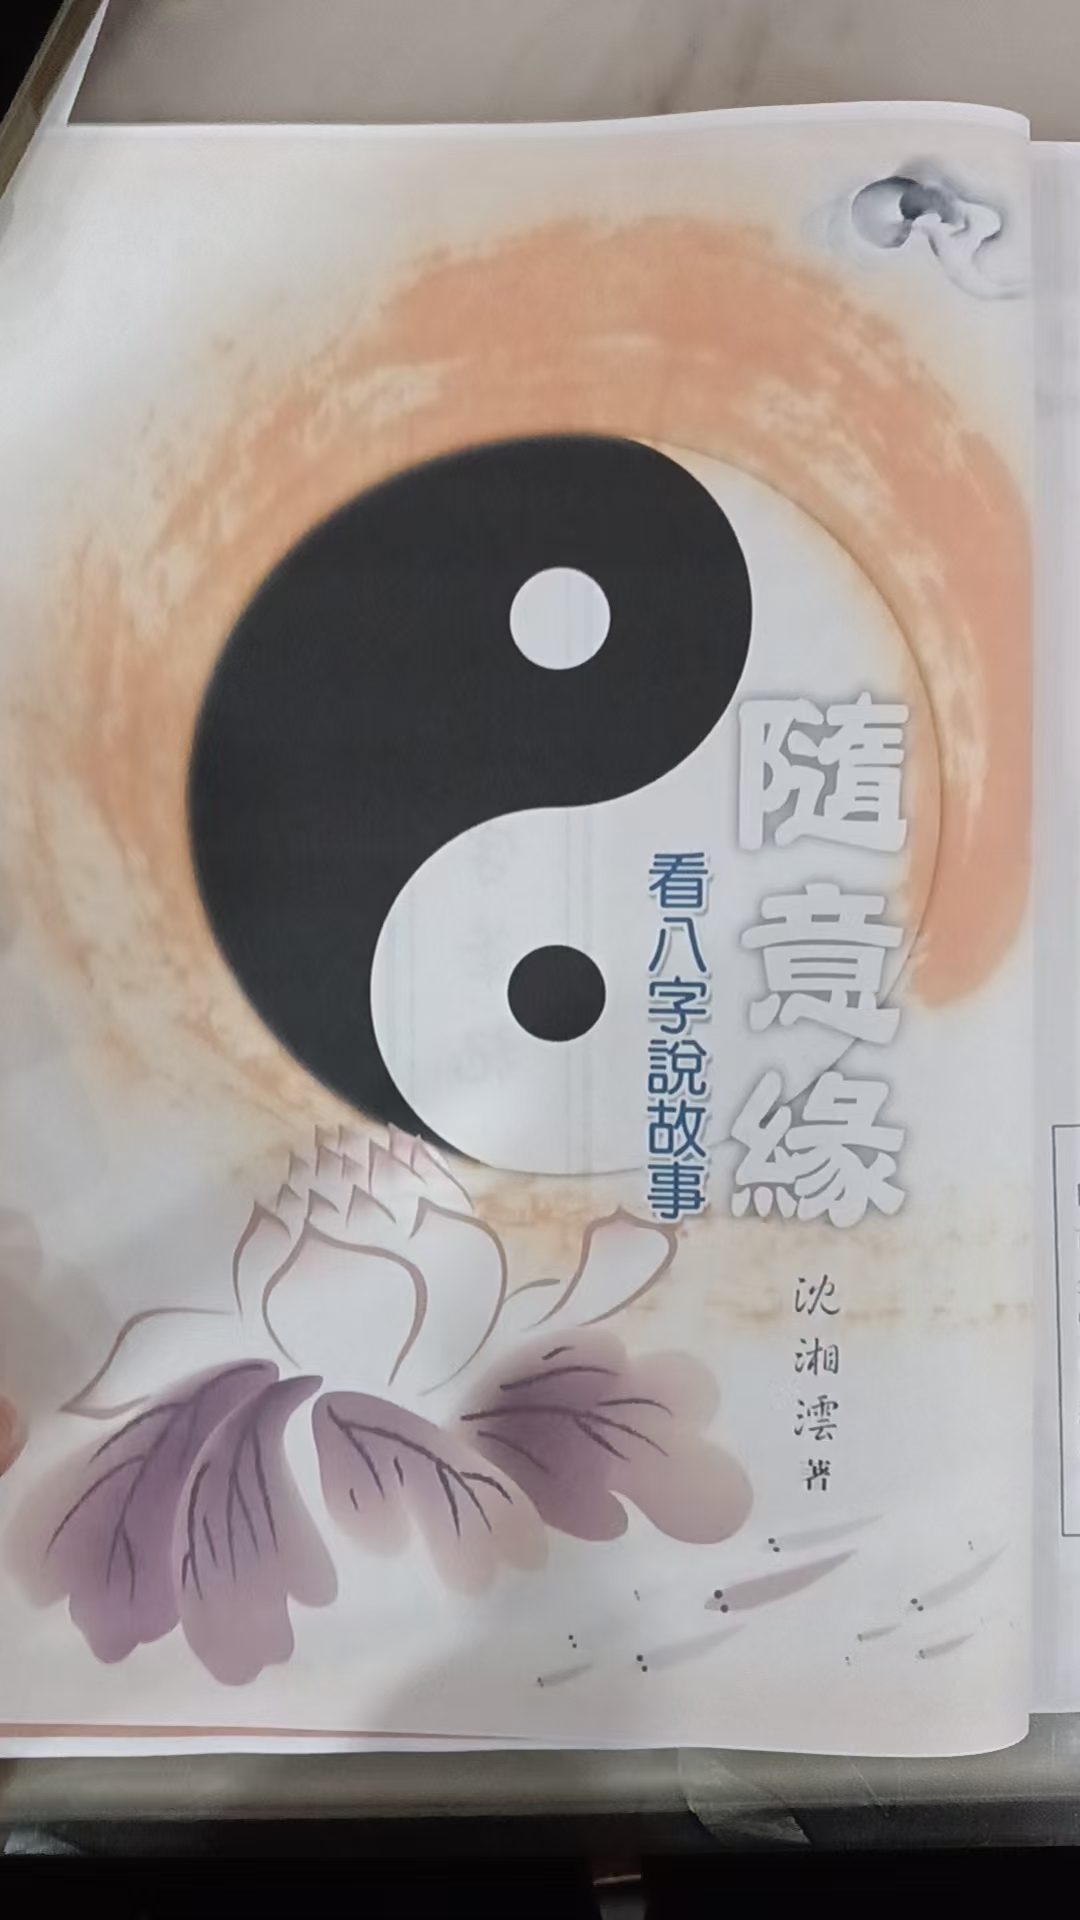 隨意緣
看八字說故事
沈湘澐 著